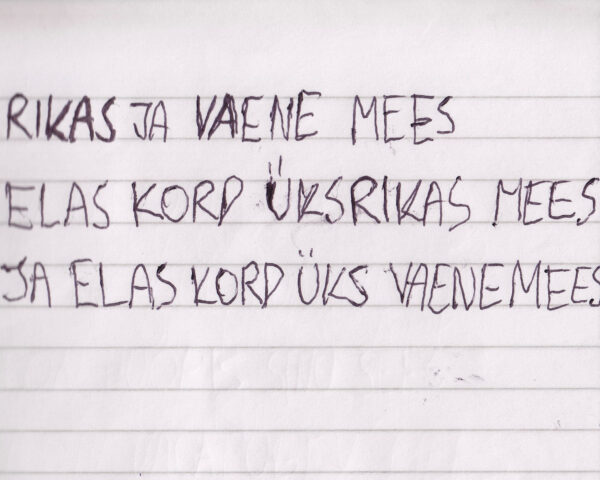 RIKAS JA VAENE MEES
ELAS KORD ÜKSRIKAS MEES
JA ELAS KORD ÜKS VAENEMEES